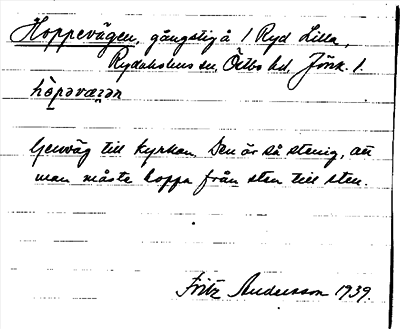 Hoppevägen, gångstig å 1 Ryd Lilla,
Rydaholms sn, Östbo hd, Jönk. l.
hòpəvæ̨gən
Genväg till kyrkan. Den är så stenig, att
man måste hoppa från sten till sten.
Fritz Andersson 1939.